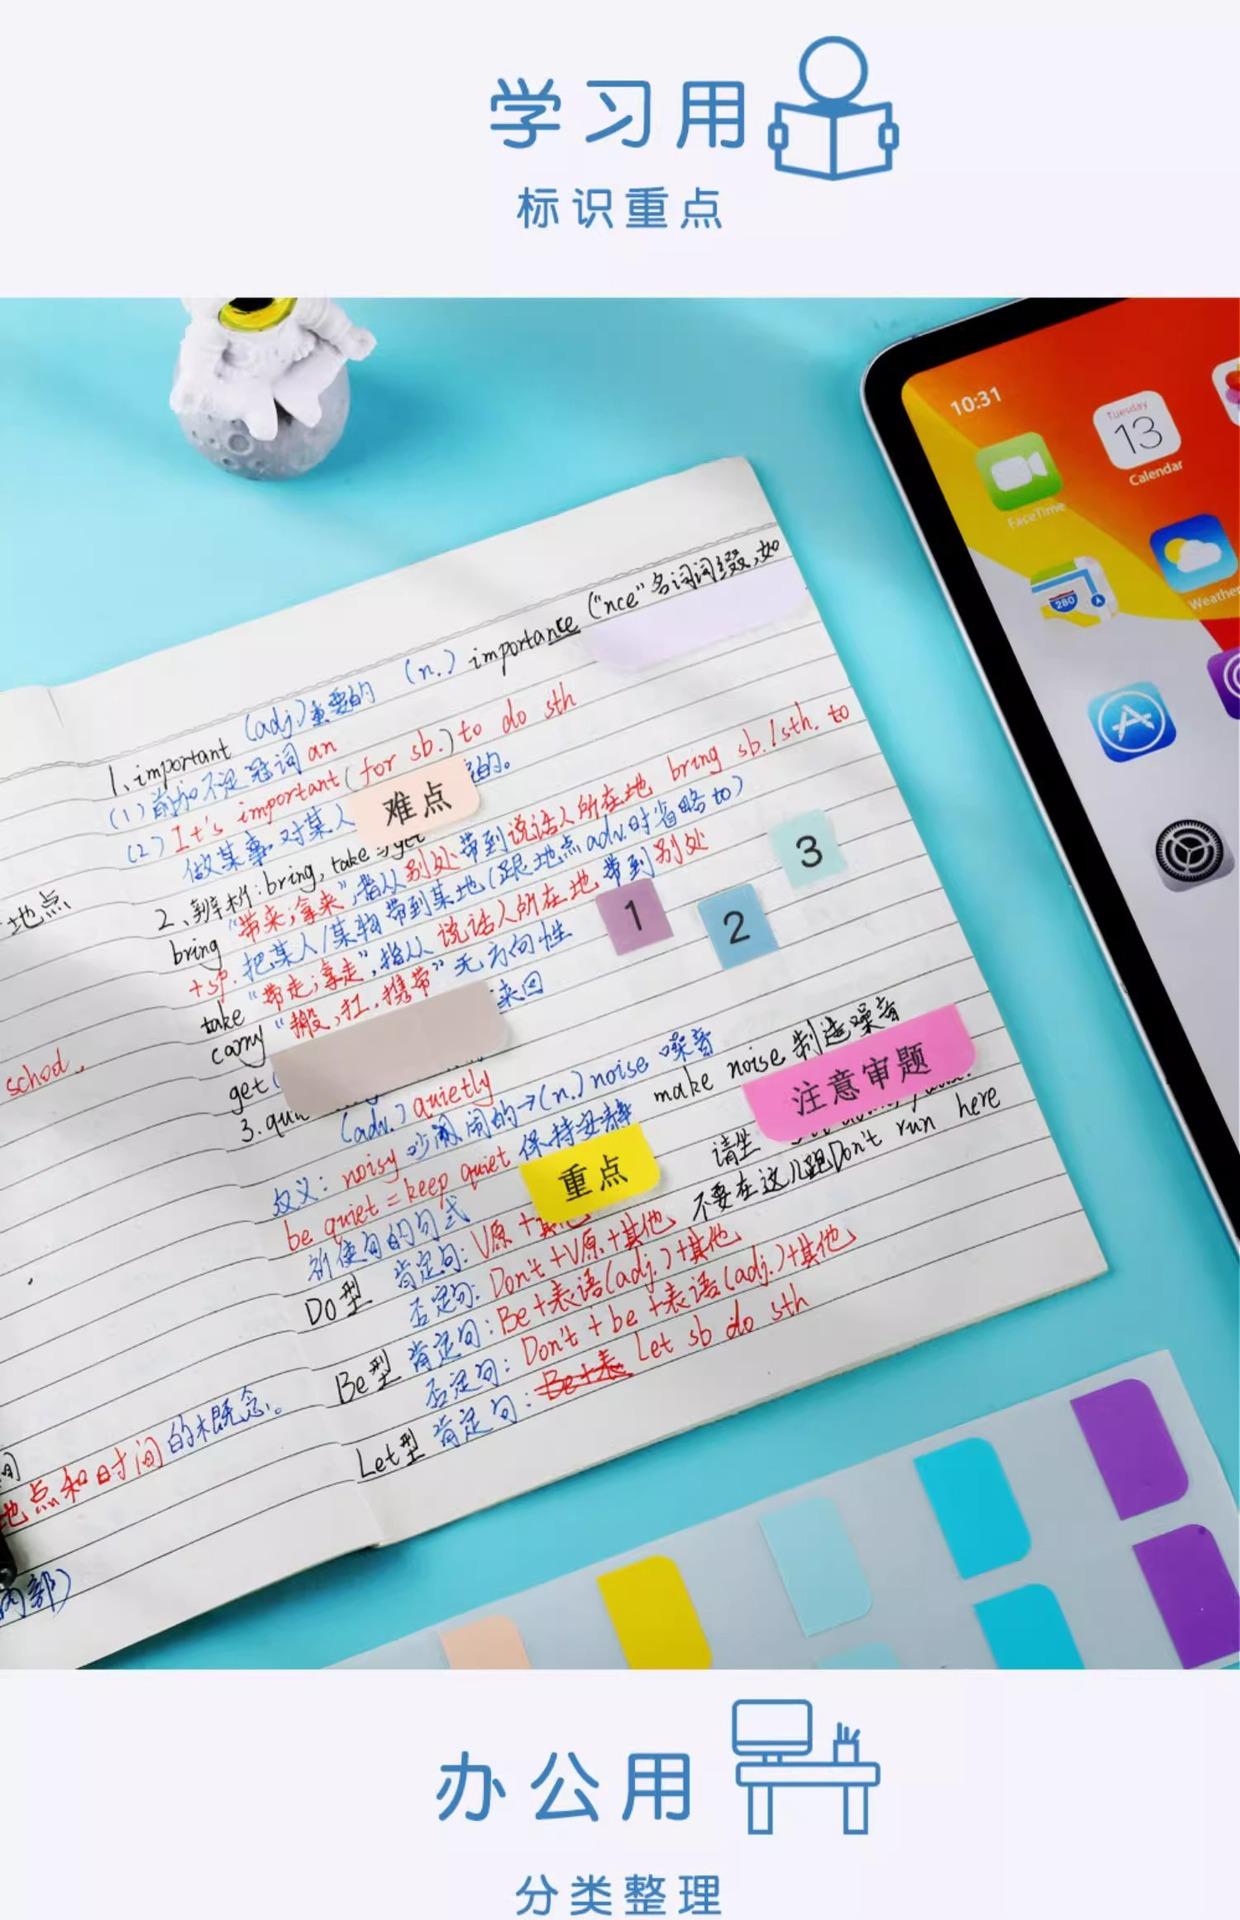 学习用
标识重点
10:31
Tuesday
13
Calendar
FaceTime
280
Weather
1、important (adj)重要的 (n.) importance ("nce"名词词缀,如
(1) 前加不定冠词 an
(2) It's important (for sb.) to do sth
做某事对某人 的。
难点
2、辨析: bring, take get
bring "带来;拿来",指从别处带到说话人所在地 bring sb./sth. to
+sp. 把某人/某物带到某地(跟地点adv.时省略to)
take "带走;拿走",指从说话人所在地带到别处
carry "搬,扛,携带"无方向性
get 来回
1
2
3
3.
(adv.) quietly
反义: noisy 吵闹闹的→(n.) noise 噪音 make noise 制造噪音
be quiet = keep quiet 保持安静
注意审题
重点
请坐
不要在这儿跑Don't run here
祈使句的句式
Do型 肯定句: V原+其他
否定句: Don't+V原+其他
Be型 肯定句: Be+表语(adj.)+其他
否定句: Don't+be+表语(adj.)+其他
Let型 肯定句: Be+表 Let sb do sth
地点
school.
间
地点和时间的概念。
内部)
办公用
分类整理